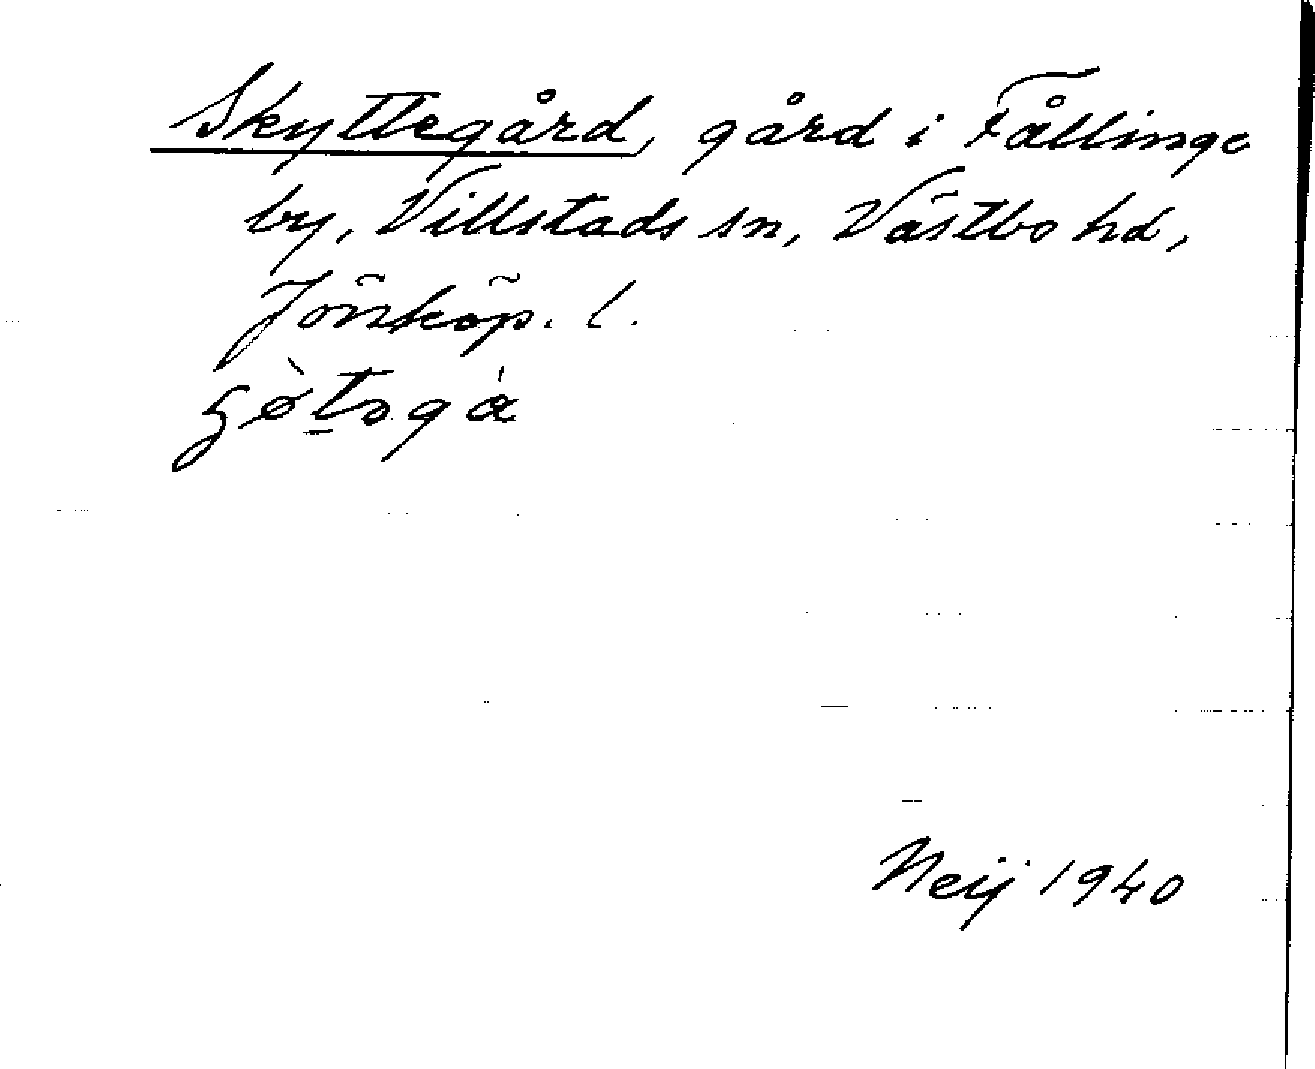 Skyttegård, gård i Fållinge
by, Villstads sn, Västbo hd,
Jönköp. l.
Neij 1940